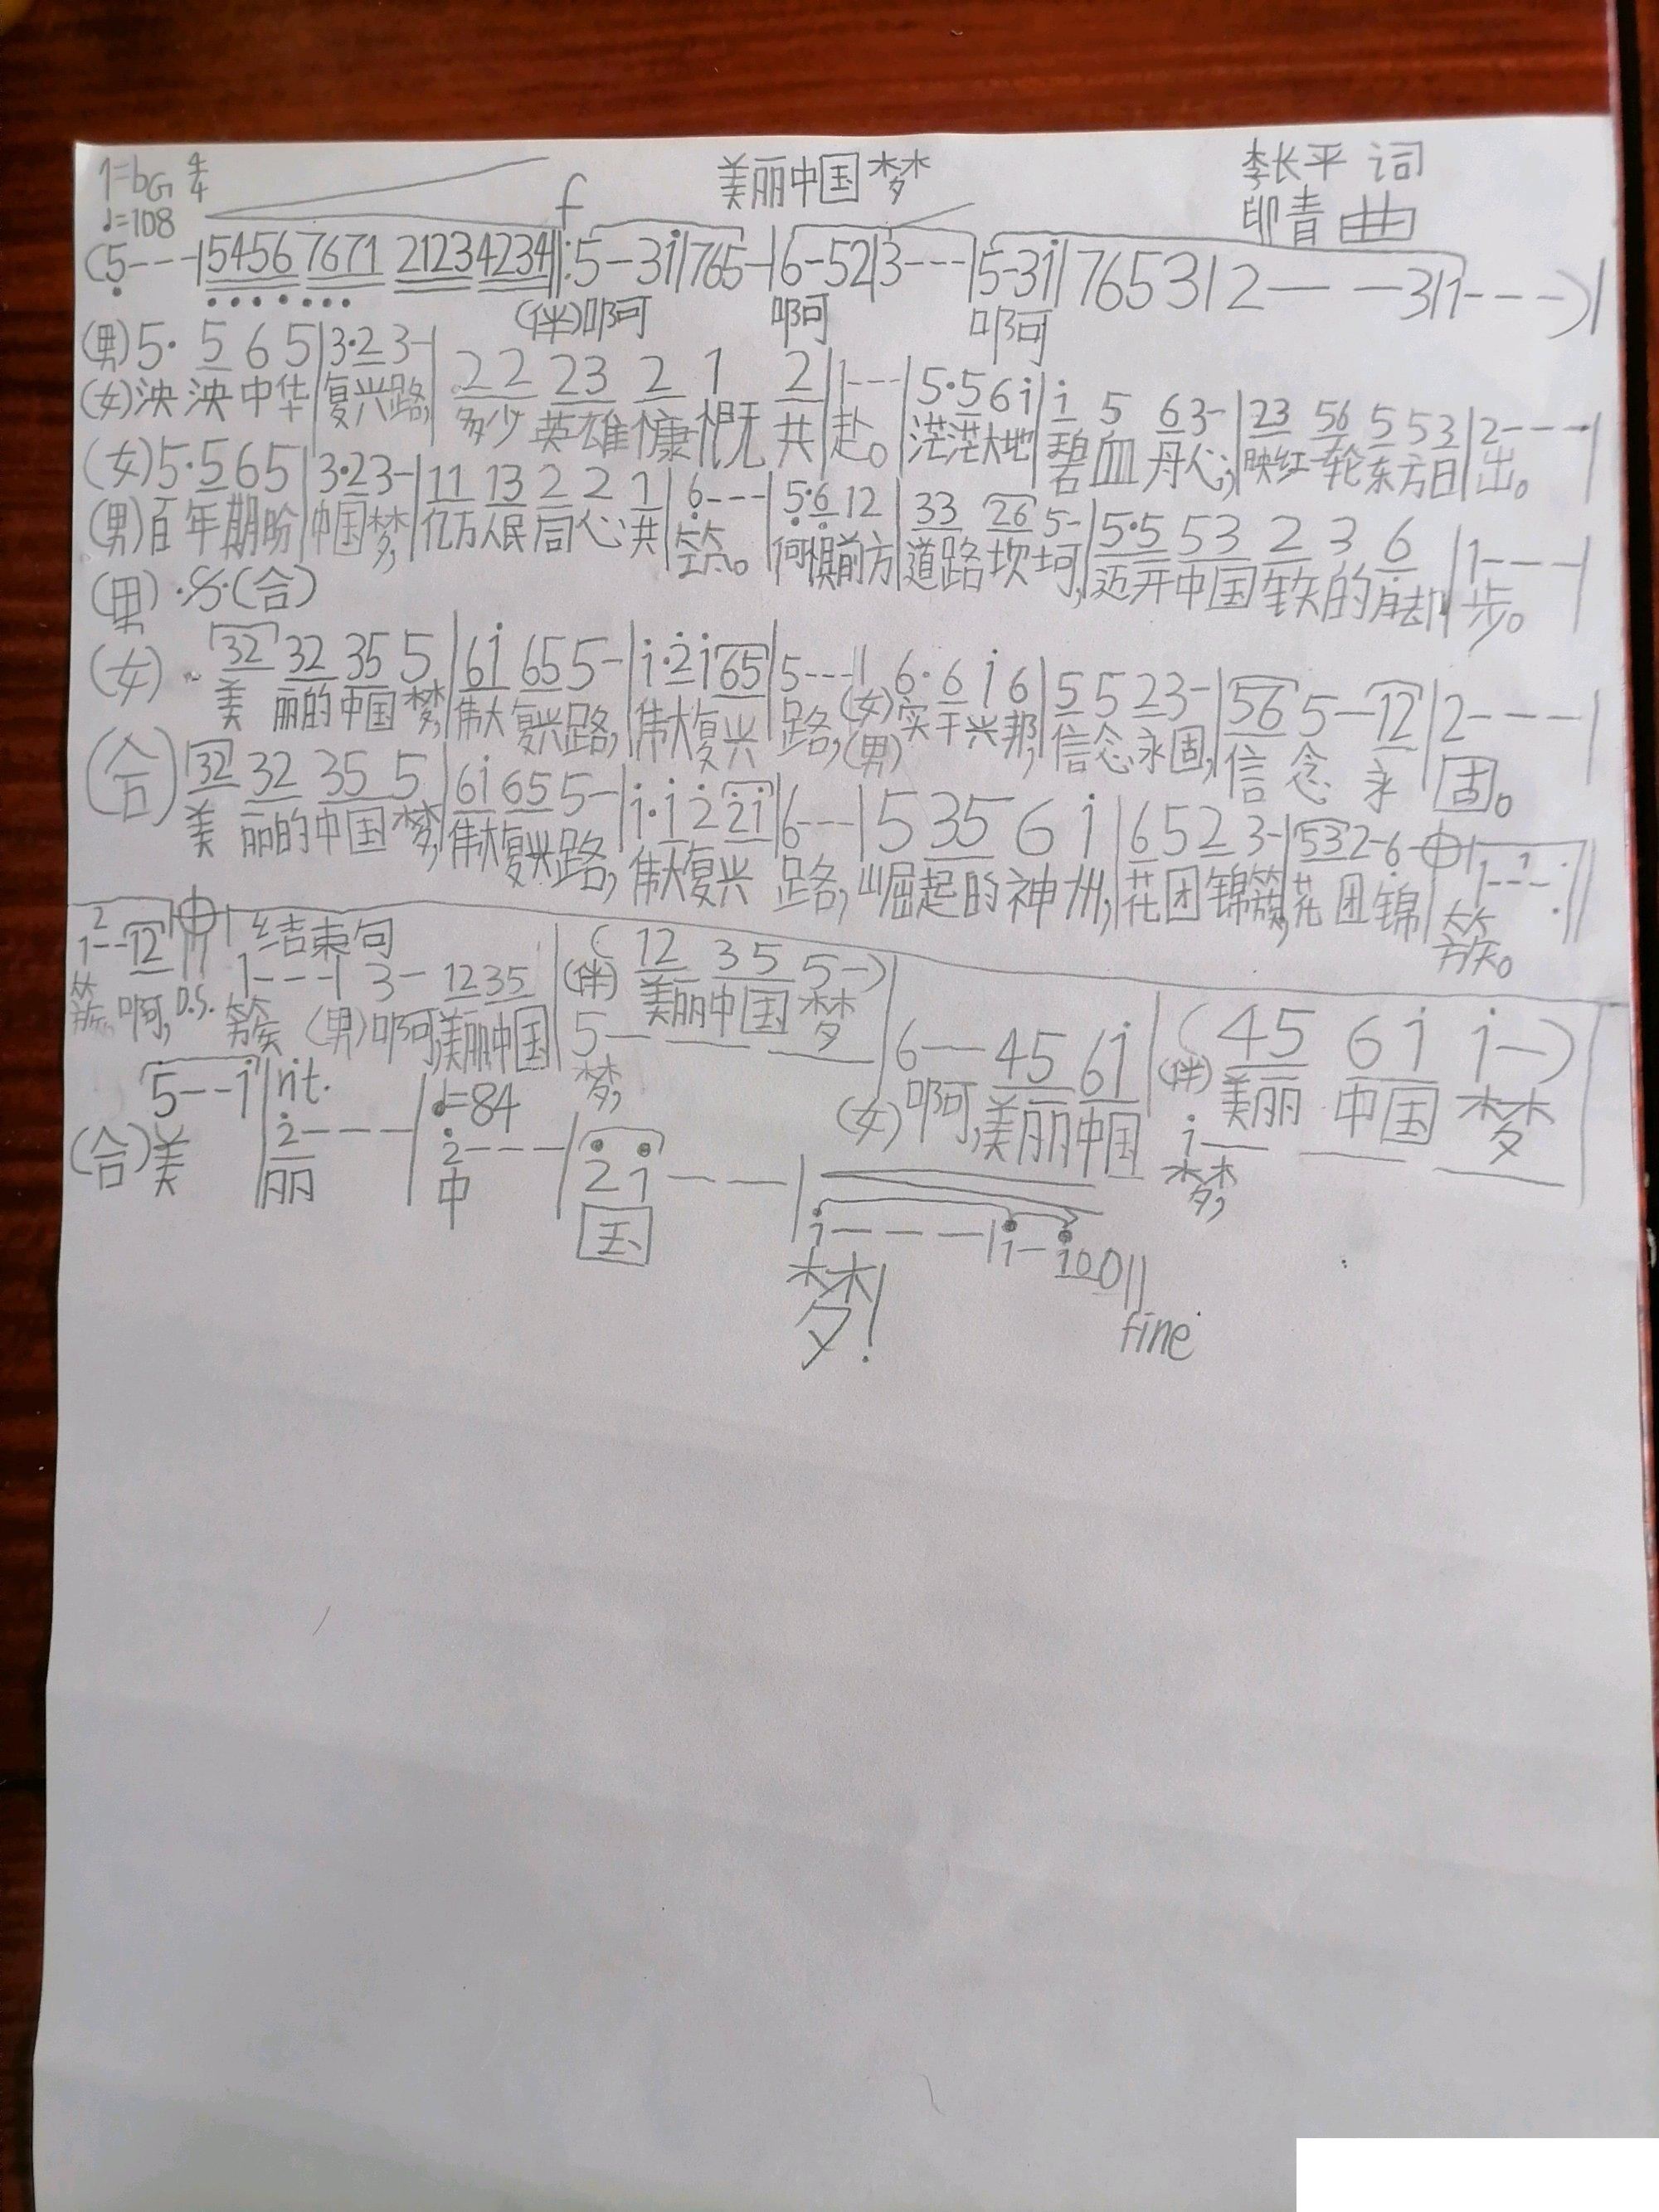 1=bG 4/4 f 美丽中国梦 李长平 词
♩=108 印青 曲
(5---|5456 7671 2123 4234‖:5-3i|765-|6-52|3---|5-3i|7653|2--- 3|1---)|
(伴)啊 啊 啊
(男)5· 5 6 5|3·2 3-|22 23 2 1 2|1---|5·5 6 i|i 5 6 3-|23 56 5 5 3|2---|
(女)泱 泱 中华|复兴路,|多少 英雄 慷慨 共|赴。|茫茫大地|碧血 丹心;|映红一轮东方日|出。
(女)5·5 6 5|3·2 3-|11 13 2 2 1|6---|5·6 12|33 26 5-|5·5 53 2 3 6|1---|
(男)百年期盼|中国梦,|亿万人民同心共|筑。|何惧前方|道路坎坷,|迈开中国铁的脚|步。
(男)·𝄋·(合)
(女) 32 32 35 5|6i 65 5-|i·2 i 65|5---|6·6 i 6|5 5 2 3-|56 5-12|2---|
美 丽的中国梦,|伟大复兴路,|伟大复兴|路,(女)实干兴邦,|信念永固,|信 念 永|固。
(男)
(合)32 32 35 5|6i 65 5-|i·i 2 2i|6---|5 35 6 i|6 5 2 3-|53 2-6-𝄌|1 1---:‖
美 丽的中国梦,|伟大复兴路,|伟大复兴 路,|崛起的神州,|花团锦簇,|花 团锦|簇。
2 1--12‖𝄌 结束句
1---|3- 1235|(伴)(12 35 5-)
簇。啊, D.S. 簇 (男)啊,美丽中国 美丽中国 梦
5- — —|6--45 6i|(伴)(45 6i i-)
梦, (女)啊,美丽中国 美丽 中国 梦
i- — —
梦,
5--i|rit. 2---|♩=84 2---|2i--|i---|i-i00‖
(合)美 丽 中 国 梦!
fine